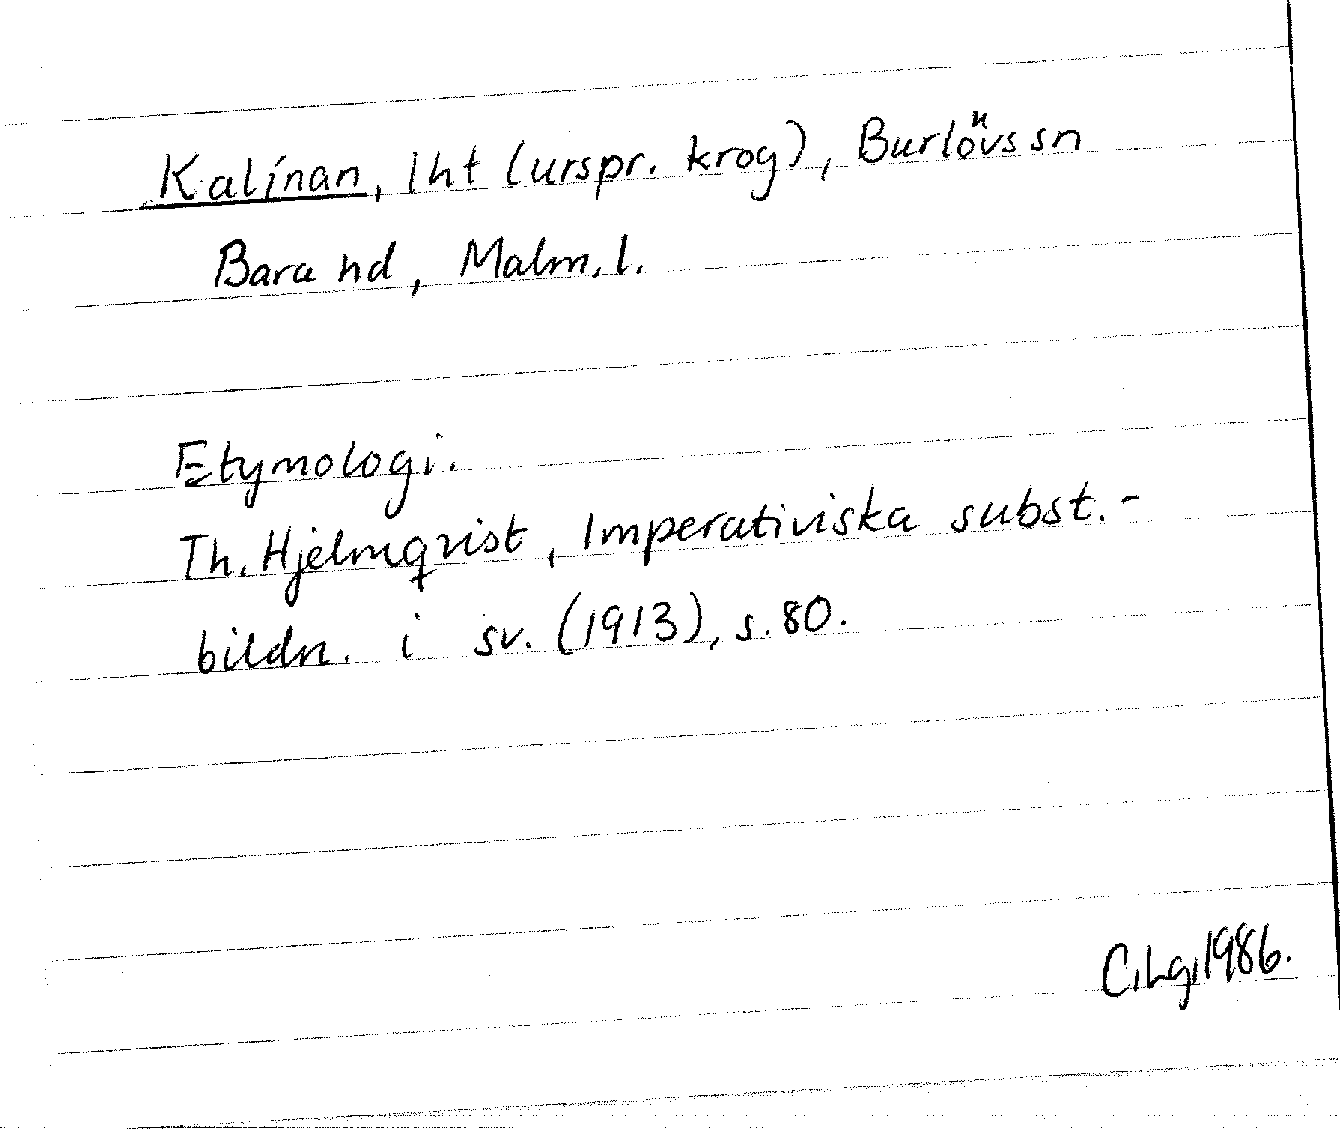 Kalínan, lht (urspr. krog), Burlövs sn
Bara hd, Malm. l.
Etymologi.
Th. Hjelmqvist, Imperativiska subst.-
bildn. i sv. (1913), s. 80.
C. Lg, 1986.